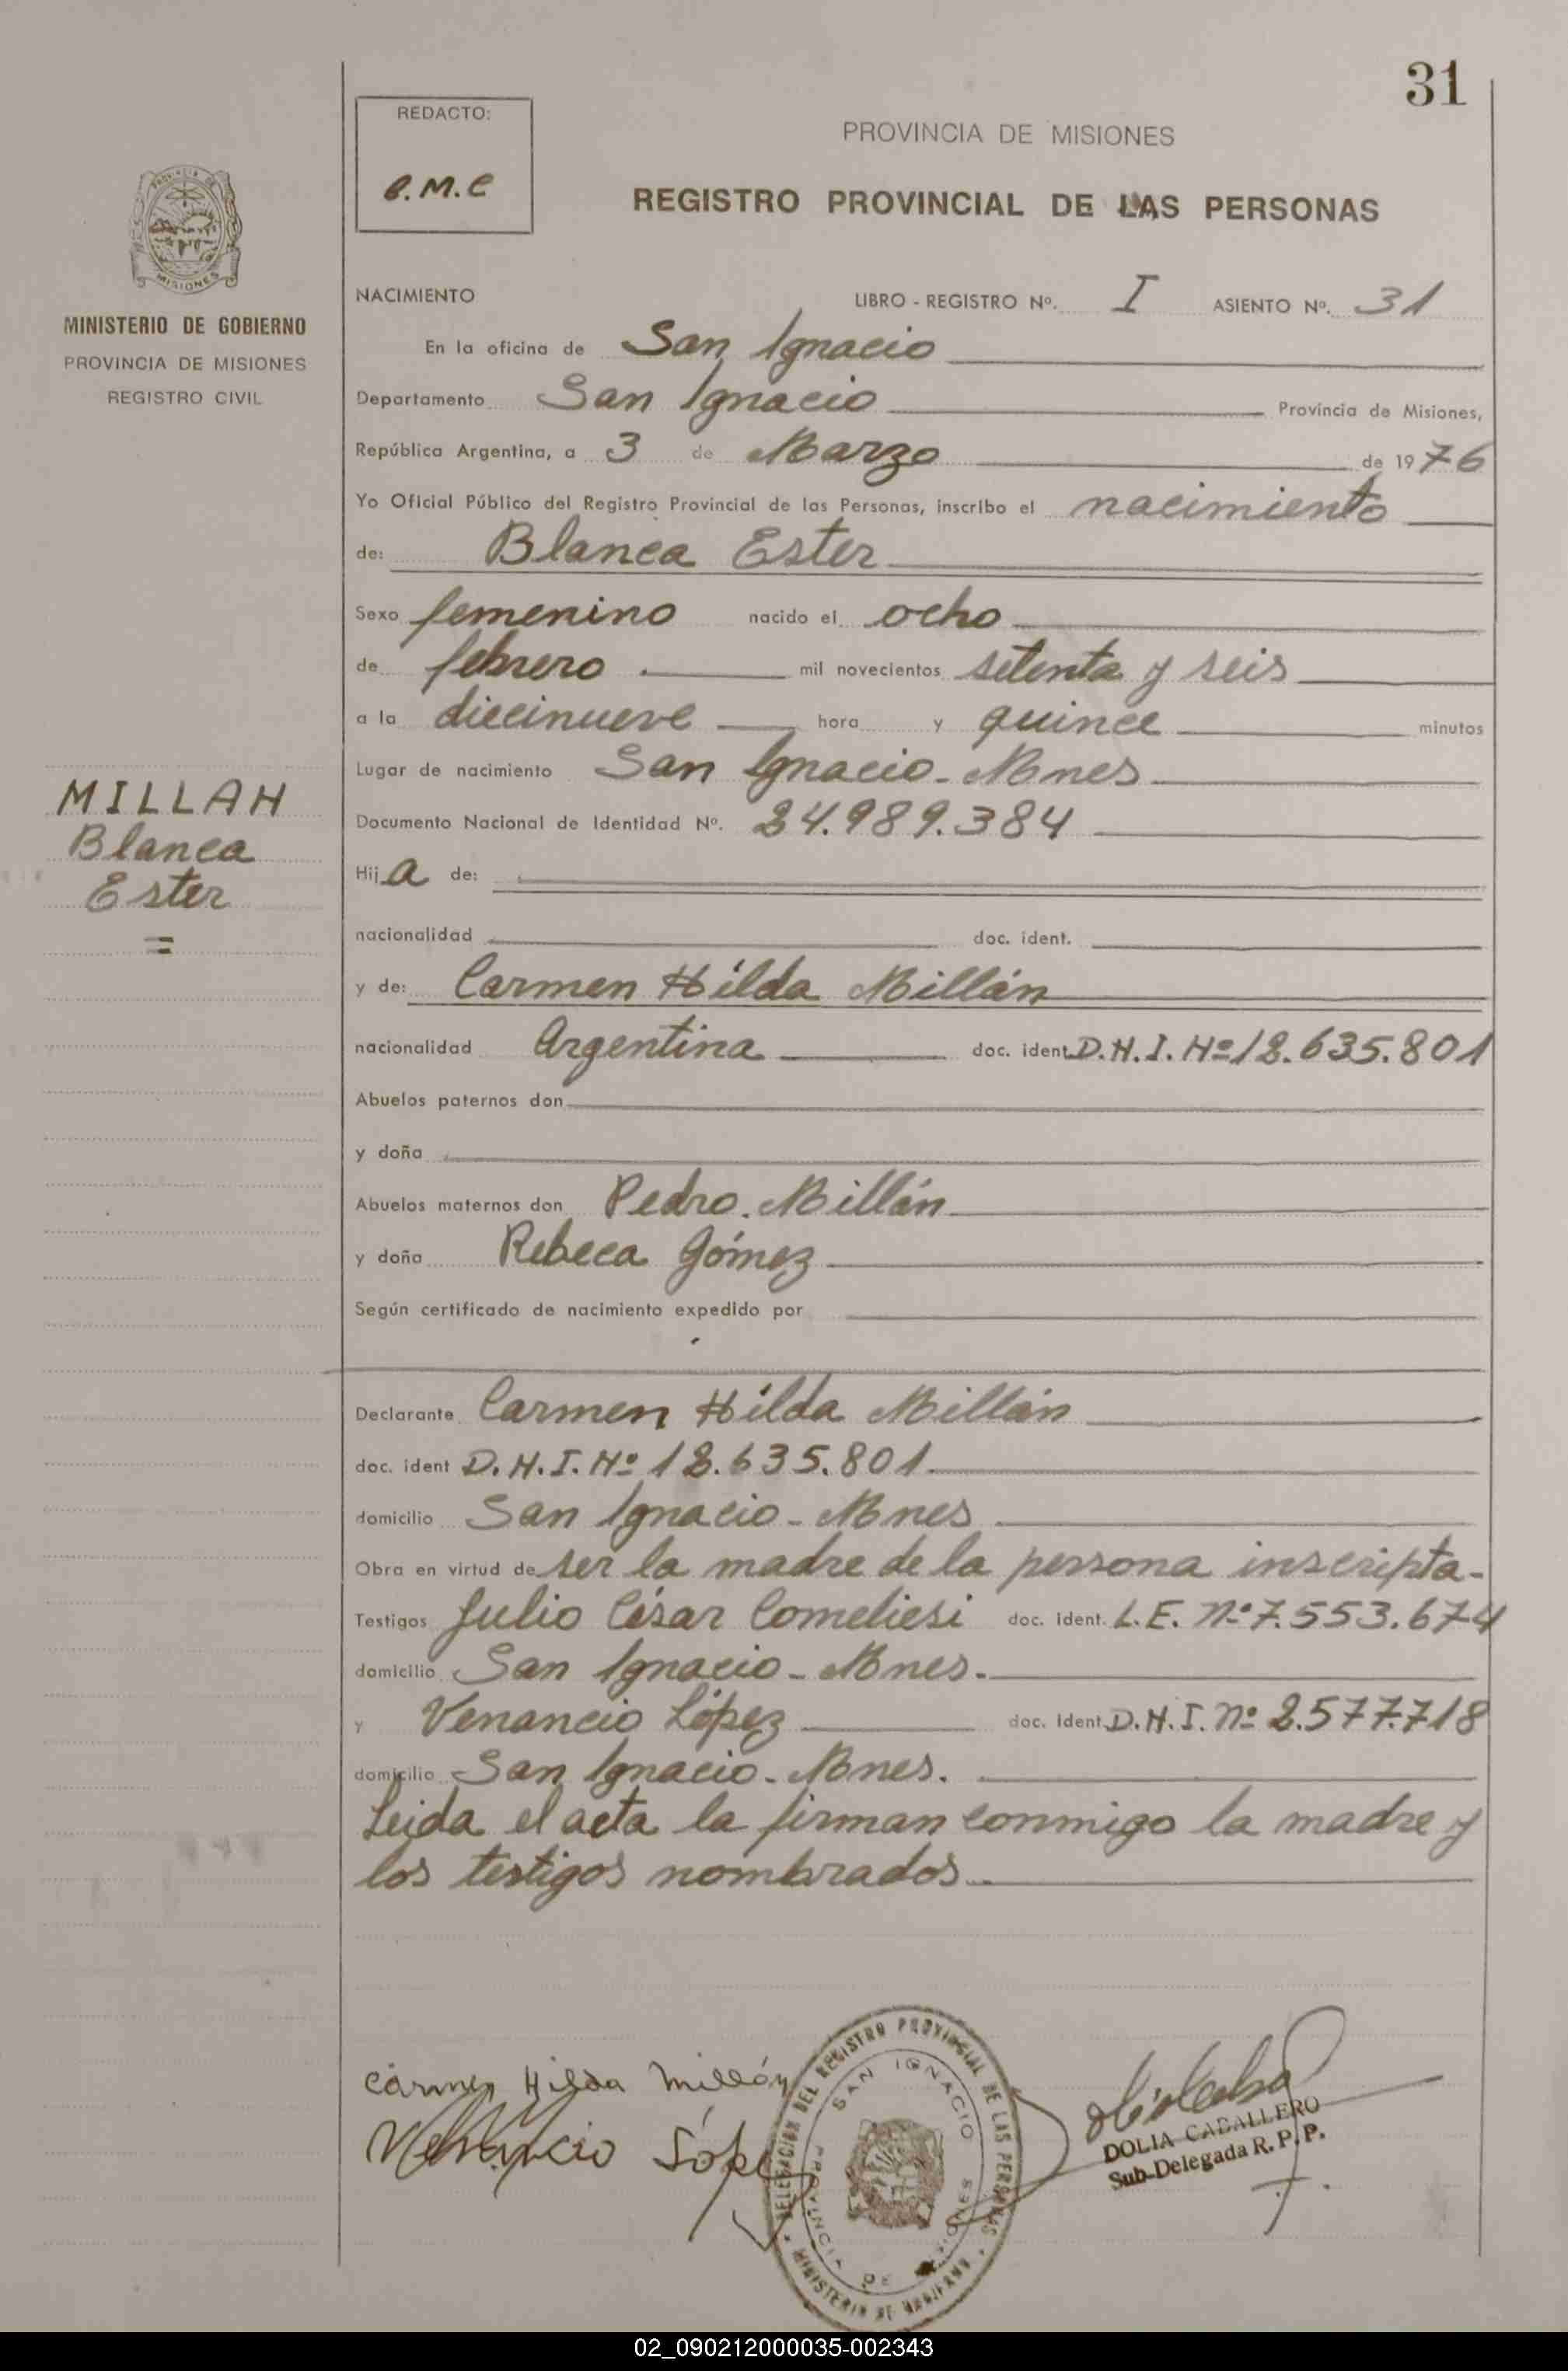 31
REDACTO:
C.M.C
PROVINCIA DE MISIONES
REGISTRO PROVINCIAL DE LAS PERSONAS
MISIONES
MINISTERIO DE GOBIERNO
PROVINCIA DE MISIONES
REGISTRO CIVIL
NACIMIENTO LIBRO - REGISTRO Nº. I ASIENTO Nº. 31
En la oficina de San Ignacio
Departamento San Ignacio Provincia de Misiones,
República Argentina, a 3 de Marzo de 1976
Yo Oficial Público del Registro Provincial de las Personas, inscribo el nacimiento
de: Blanca Ester
Sexo femenino nacido el ocho
de febrero mil novecientos setenta y seis
a la diecinueve hora y quince minutos
Lugar de nacimiento San Ignacio - Mnes
Documento Nacional de Identidad Nº. 24.989.384
MILLAN
Blanca
Ester
=
Hija de:
nacionalidad doc. ident.
y de: Carmen Hilda Millán
nacionalidad Argentina doc. ident. D.N.I. Nº 12.635.801
Abuelos paternos don
y doña
Abuelos maternos don Pedro Millán
y doña Rebeca Gómez
Según certificado de nacimiento expedido por
Declarante Carmen Hilda Millán
doc. ident D.N.I. Nº 12.635.801
domicilio San Ignacio - Mnes
Obra en virtud de ser la madre de la persona inscripta-
Testigos Julio César Comeliesi doc. ident. L.E. Nº 7.553.674
domicilio San Ignacio - Mnes.
y Venancio López doc. ident. D.N.I. nº 2.577.718
domicilio San Ignacio - Mnes.
Leida el acta la firman conmigo la madre y
los testigos nombrados
Carmen Hilda Millón
Venancio López
DELEGACION DEL REGISTRO PROVINCIAL DE LAS PERSONAS
SAN IGNACIO
PROVINCIA DE MISIONES
MINISTERIO DE GOBIERNO
DOLIA CABALLERO
Sub-Delegada R. P. P.
02_090212000035-002343